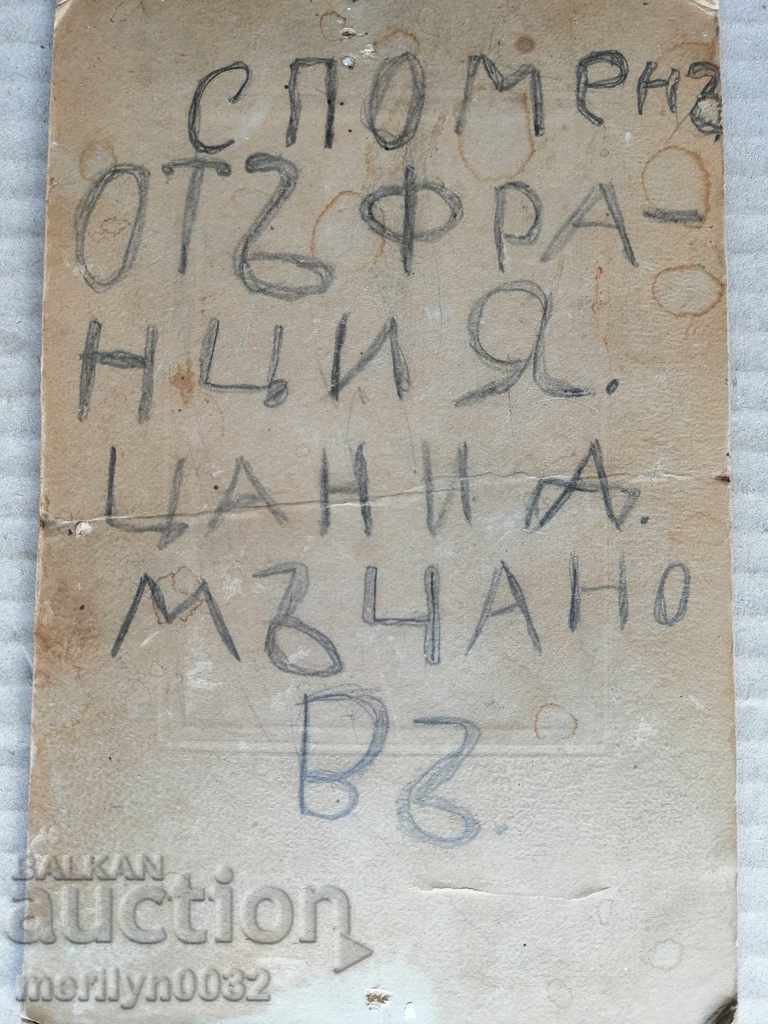 СПОМЕНЪ
ОТЪ ФРА-
НЦИЯ.
ЦАНИ Д.
МЪЧАНО
ВЪ.
BALKAN
auction
merilyn0032